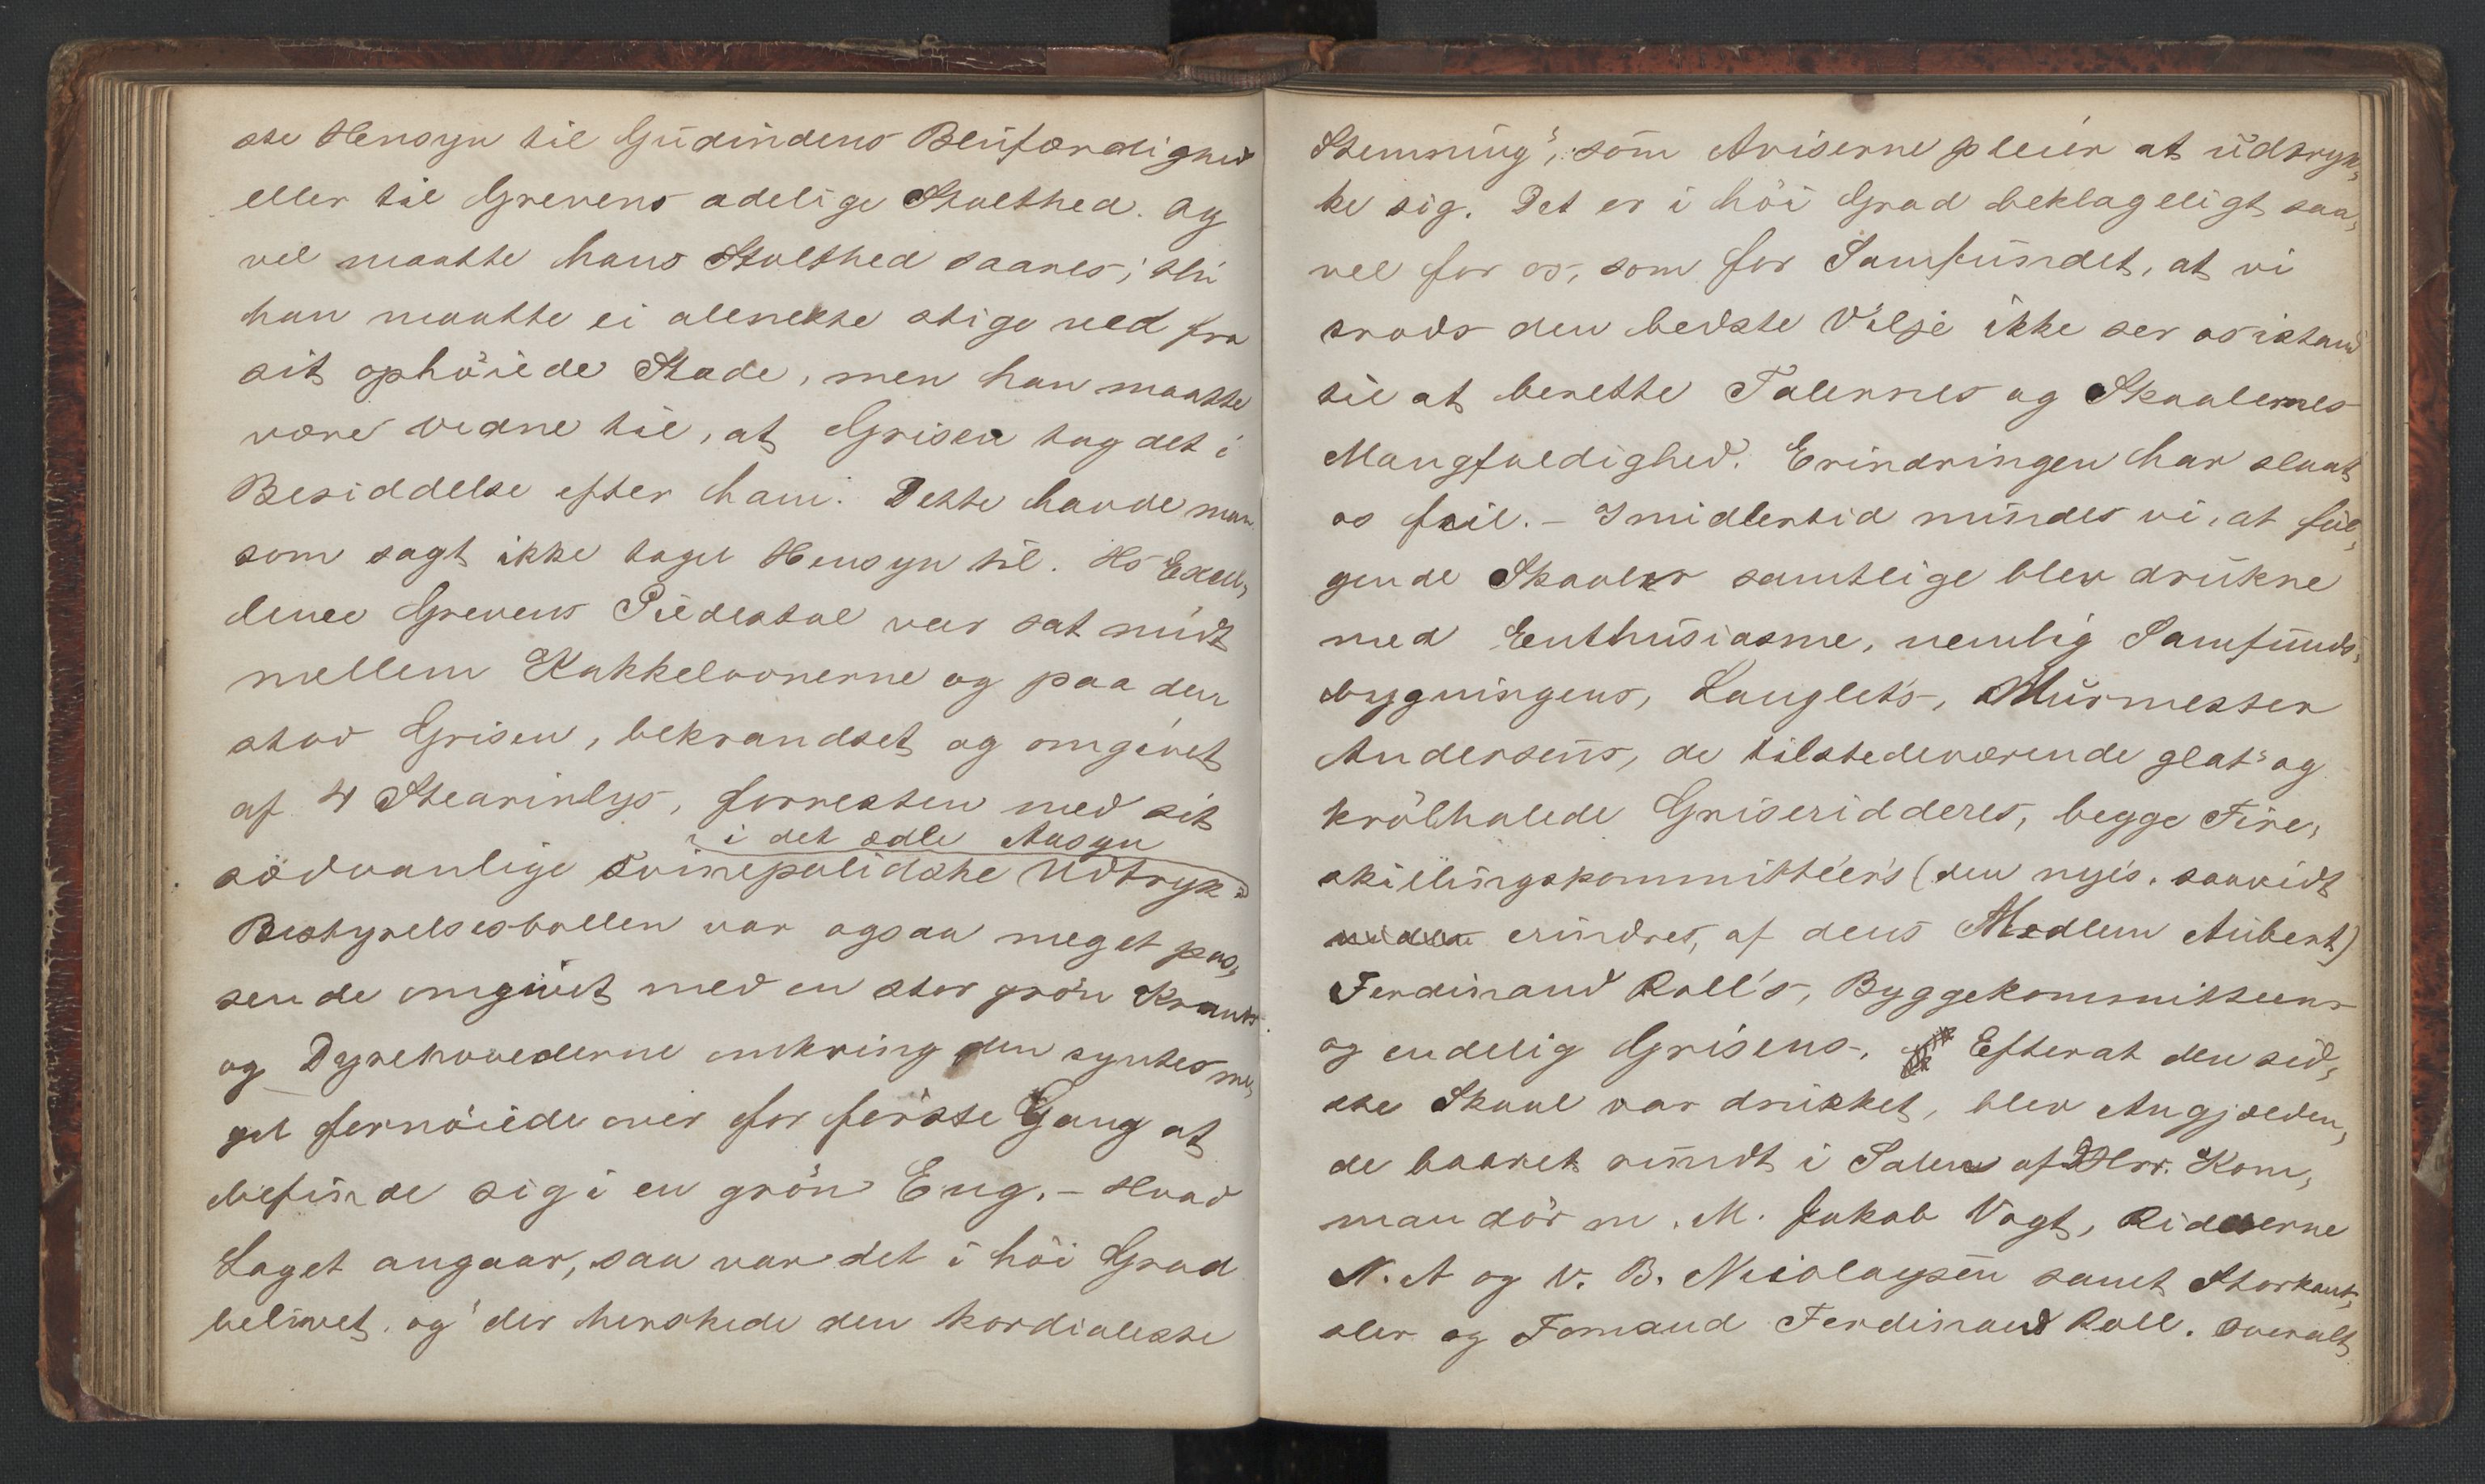 ste Hensyn til Gudindens Blufærdighed
eller til Grevens adelige Stolthed. Og
vel maatte hans Stolthed saares; thi
han maatte ei alenekte stige ned fra
sit ophöiede Stade, men han maatte
være Vidne til, at Grisen tog det i
Besiddelse efter ham. Dette havde man
som sagt ikke taget Hensyn til. Hs Excel,
lence Grevens Piedestal var sat midt
mellem Kakkelovnerne og paa den
stod Grisen, bekrandset og omgivet
af 4 Stearinlys, forresten med sit
i det ædle Aasyn
södvanlige svinepolidske Udtryk
Bestyrelsesbollen var ogsaa meget pas,
sende omgivet med en stor grön Krands
og Dyrehovederne omkring den syntes me,
get fornöiede over for förste Gang at
befinde sig i en grön Eng. – Hvad
Laget angaar, saa var det i höi Grad
belivet, og "der herskede den kordialeste
Stemning", som Aviserne pleier at udtryk,
ke sig. Det er i höi Grad beklageligt saa,
vel for os, som for Samfundet, at vi
trods den bedste Vilje ikke ser os istand
til at berette Talernes og Skaalernes
Mangfoldighed. Erindringen har slaat
os feil. – Imidlertid mindes vi, at föl,
gende Skaaler samtlige blev drukne
med Enthusiasme, nemlig Samfunds,
bygningens, Langlets, Murmester
Andersens, de tilstedeværende glat- og
krölhalede Griseridderes, begge Fire,
skillingskommittéers (den nye's, saavidt
erindres, af dens Medlem Aubert)
Ferdinand Roll's, Byggekommitteens
og endelig Grisens. Efterat den sid,
ste Skaal var drukket, blev Angjælden,
de baaret rundt i Salen af Hrr. Kom,
mandör m. M. Jakob Vogt, Ridderne
N. A og V. B. Nicolaysen samt Storkant,
sler og Formand Ferdinand Roll. Overalt